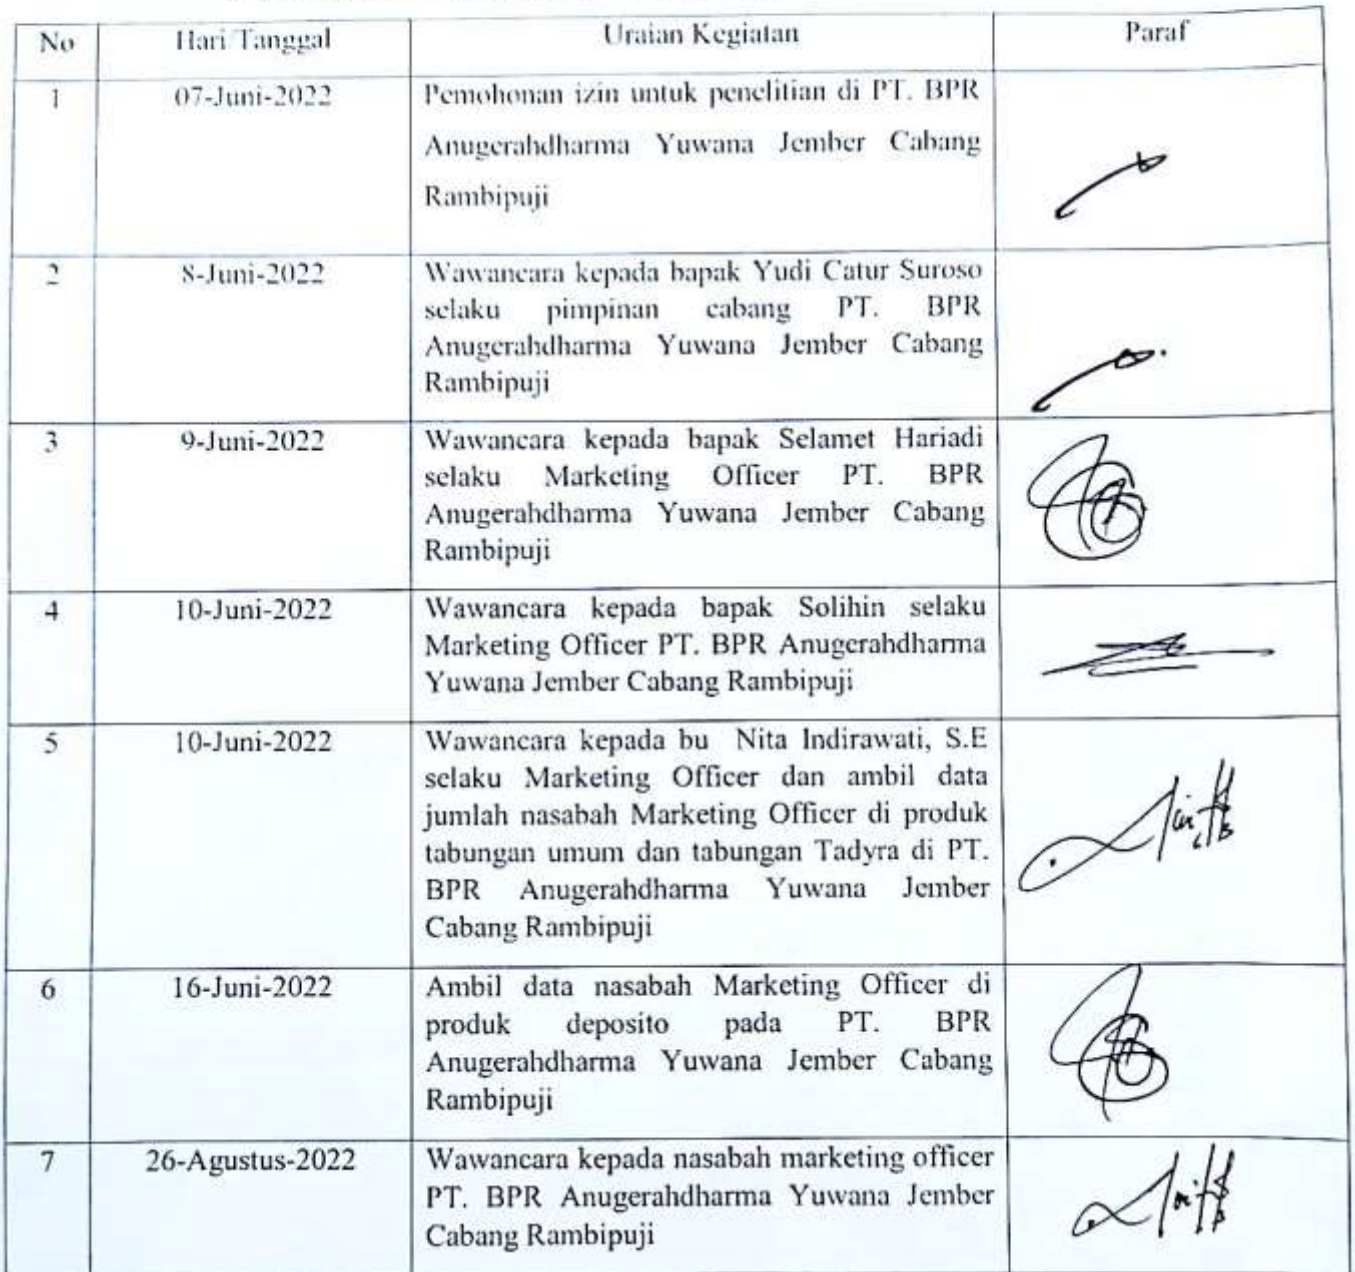 No Hari/Tanggal Uraian Kegiatan Paraf
1 07-Juni-2022 Pemohonan izin untuk penelitian di PT. BPR
Anugerahdharma Yuwana Jember Cabang
Rambipuji
2 8-Juni-2022 Wawancara kepada bapak Yudi Catur Suroso
selaku pimpinan cabang PT. BPR
Anugerahdharma Yuwana Jember Cabang
Rambipuji
3 9-Juni-2022 Wawancara kepada bapak Selamet Hariadi
selaku Marketing Officer PT. BPR
Anugerahdharma Yuwana Jember Cabang
Rambipuji
4 10-Juni-2022 Wawancara kepada bapak Solihin selaku
Marketing Officer PT. BPR Anugerahdharma
Yuwana Jember Cabang Rambipuji
5 10-Juni-2022 Wawancara kepada bu Nita Indirawati, S.E
selaku Marketing Officer dan ambil data
jumlah nasabah Marketing Officer di produk
tabungan umum dan tabungan Tadyra di PT.
BPR Anugerahdharma Yuwana Jember
Cabang Rambipuji
6 16-Juni-2022 Ambil data nasabah Marketing Officer di
produk deposito pada PT. BPR
Anugerahdharma Yuwana Jember Cabang
Rambipuji
7 26-Agustus-2022 Wawancara kepada nasabah marketing officer
PT. BPR Anugerahdharma Yuwana Jember
Cabang Rambipuji